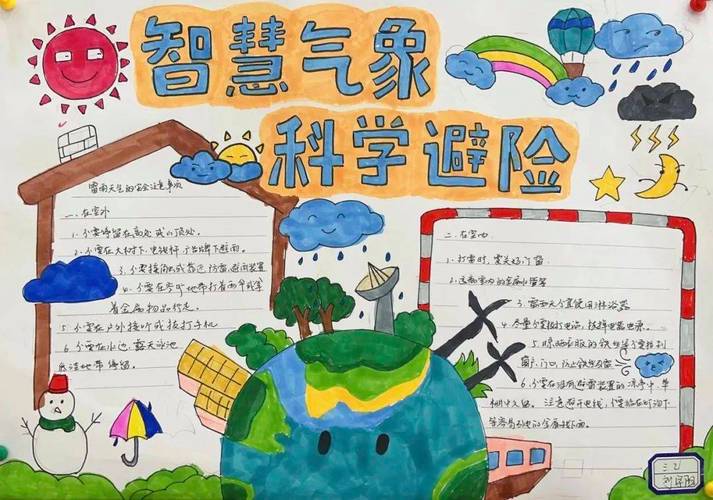 智慧气象
科学避险
雷雨天气的安全注意事项
一.在室外
1.不要停留在高处或山顶处.
2.不要在大树下.电线杆.广告牌下避雨.
3.不要接闭或靠近.防雷.避雷装置
4.不要在旷野地带打着雨伞或拿
着金属物品行走.
5.不要在户外接听或拨打手机
6.不要在水边.露天泳池
低洼地带停留.
二.在室内
1.打雷时.要关好门窗
2.远离室内的金属水管等
3.雷雨天不宜使用淋浴器
4.尽量不要拨打电话.拔掉电器电源.
5.晾晒衣服的铁丝不要拉到
窗户.门口.防止铁丝引雷
6.不要在没有避雷装置的
注意避开电线.不要站在灯泡下
三2